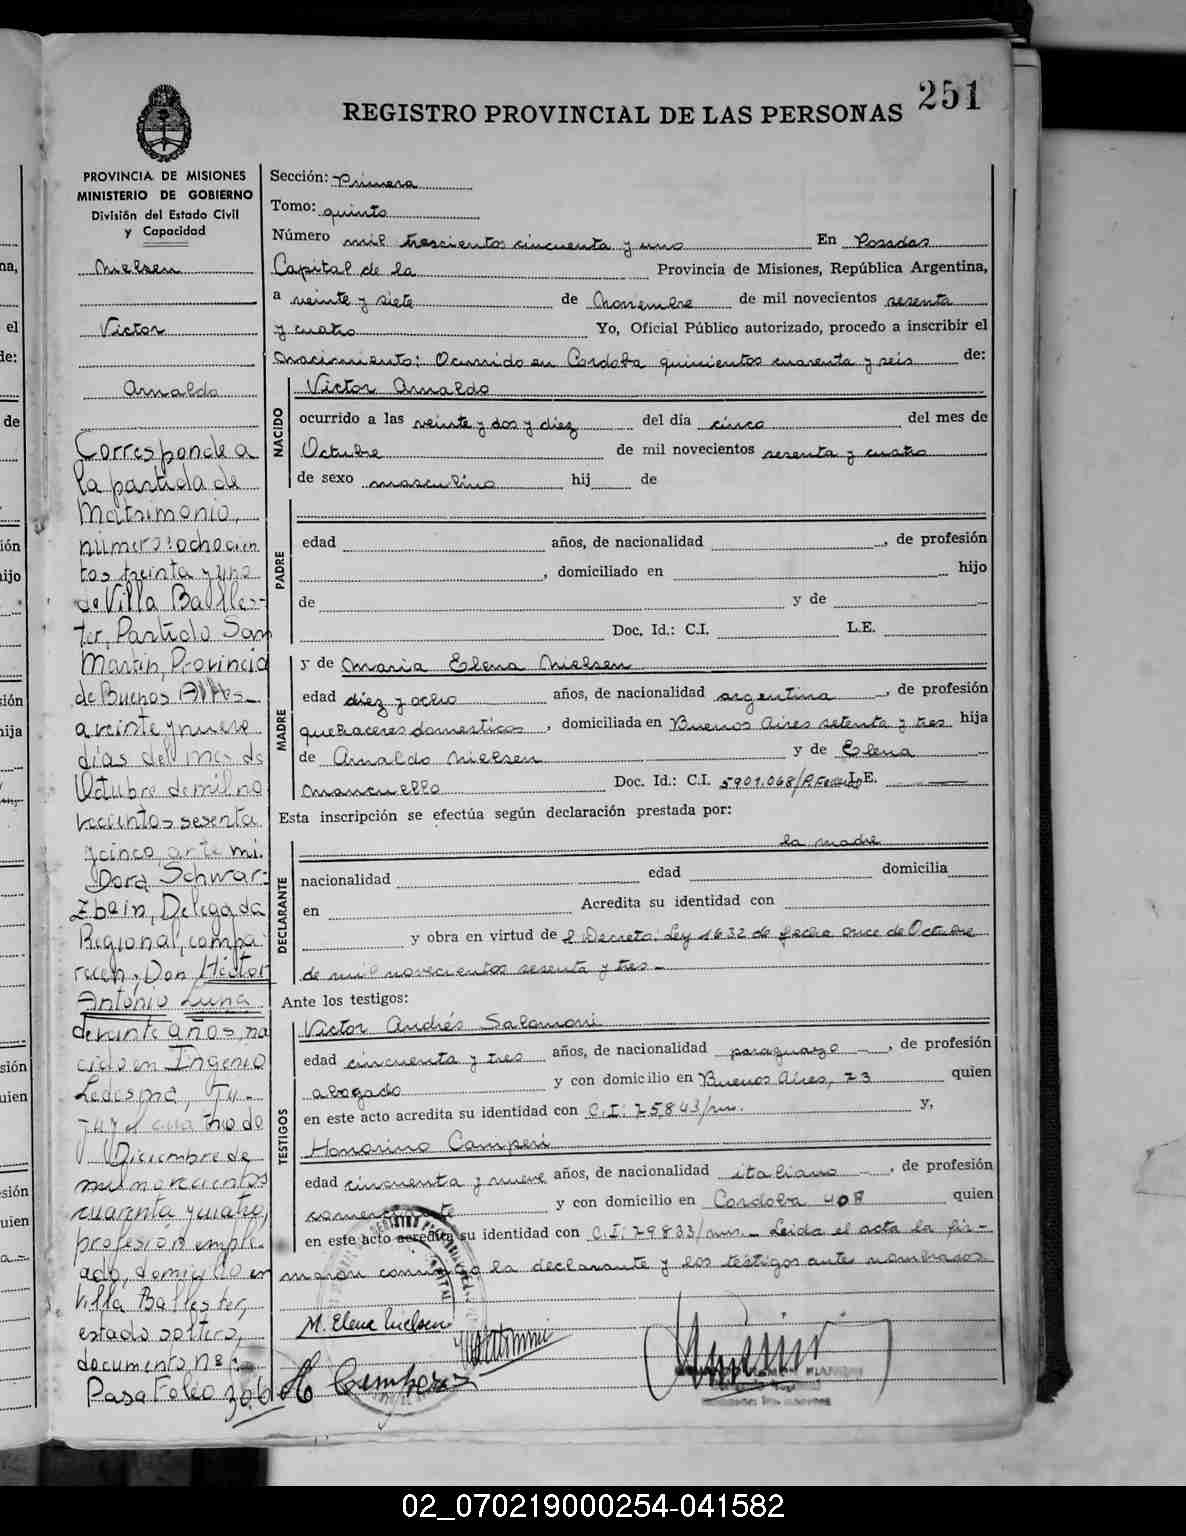 251
REGISTRO PROVINCIAL DE LAS PERSONAS
PROVINCIA DE MISIONES
MINISTERIO DE GOBIERNO
División del Estado Civil
y Capacidad
Nielsen
Victor
Arnaldo
Corresponde a
la partida de
Matrimonio,
número: ochocien
tos treinta y uno
de Villa Balles-
ter, Partido San
Martín, Provincia
de Buenos Aires_
a veinte y nueve
días del mes de
Octubre de mil no
vecientos sesenta
y cinco, ante mi.
Dora Schwar-
zbein, Delegada
Regional, compa-
recen, Don Héctor
Antonio Luna
de veinte años, na
cido en Ingenio
Ledesma, Ju-
juy el cuatro de
Diciembre de
mil novecientos
cuarenta y cuatro,
profesión emple-
ado, domicilio en
Villa Ballester,
estado soltero,
documento nº:
Pasa Folio 306
Sección: Primera
Tomo: quinto
Número mil trescientos cincuenta y uno En Posadas
Capital de la Provincia de Misiones, República Argentina,
a veinte y siete de Noviembre de mil novecientos sesenta
y cuatro Yo, Oficial Público autorizado, procedo a inscribir el
Nacimiento: Ocurrido en Cordoba quinientos cuarenta y seis de:
NACIDO
Victor Arnaldo
ocurrido a las veinte y dos y diez del día cinco del mes de
Octubre de mil novecientos sesenta y cuatro
de sexo masculino hij de
PADRE
edad años, de nacionalidad , de profesión
, domiciliado en hijo
de y de
Doc. Id.: C.I. L.E.
MADRE
y de Maria Elena Nielsen
edad diez y ocho años, de nacionalidad argentina , de profesión
quehaceres domesticos , domiciliada en Buenos Aires setenta y tres hija
de Arnaldo Nielsen y de Elena
Mancuello Doc. Id.: C.I. 5901.068/P. L.E.
Esta inscripción se efectúa según declaración prestada por:
DECLARANTE
la madre
nacionalidad edad domicilia
en Acredita su identidad con
y obra en virtud de l Decreto: Ley 1632 de fecha once de Octubre
de mil novecientos sesenta y tres_
Ante los testigos:
TESTIGOS
Victor Andrés Salomoni
edad cincuenta y tres años, de nacionalidad paraguayo , de profesión
abogado y con domicilio en Buenos Aires, 73 quien
en este acto acredita su identidad con C.I: 75,843/mis. y,
Honorino Camperi
edad cincuenta y nueve años, de nacionalidad italiano , de profesión
comerciante y con domicilio en Cordoba 408 quien
en este acto acredita su identidad con C.I: 79833/mis._ Leida el acta la fir-
maron conmigo la declarante y los testigos ante nombrados
M. Elena Nielsen
02_070219000254-041582